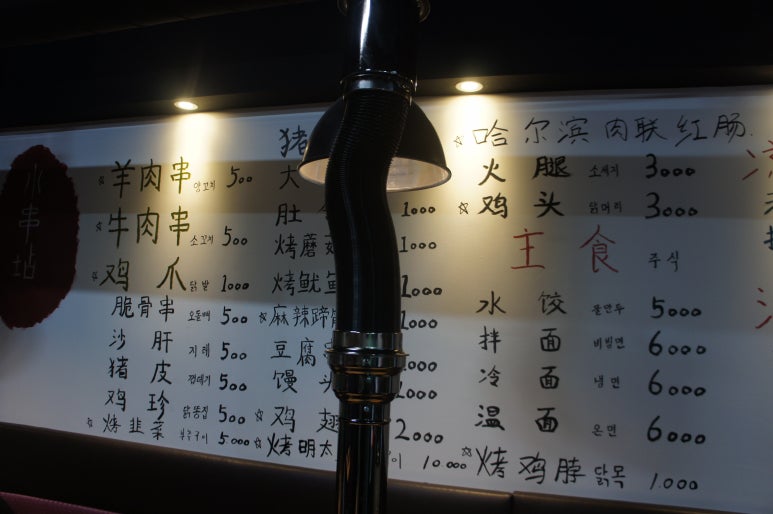 小串站
羊肉串 양꼬치 500
牛肉串 소꼬치 500
鸡爪 닭발 1000
脆骨串 오돌뼈 500
沙肝 지레 500
猪皮 껍데기 500
鸡珍 닭똥집 500
烤韭菜 부추구이 5000
猪
大
肚 1000
烤蘑菇 1000
烤鱿鱼 1000
麻辣蹄 1000
豆腐 1000
馒头 1000
鸡翅 2000
烤明太 이 10.000
哈尔滨肉联红肠
火腿 소세지 3000
鸡头 닭머리 3000
主食 주식
水饺 물만두 5000
拌面 비빔면 6000
冷面 냉면 6000
温面 온면 6000
烤鸡脖 닭목 1.000
凉